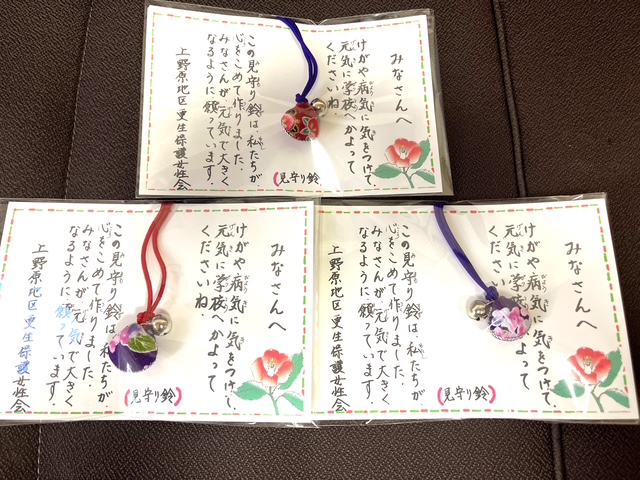 みなさんへ
けがや病気に気をつけて、
元気に学校へかよって
くださいね。
この見守り鈴は、私たちが
心をこめて作りました。
みなさんが元気で大きく
なるように願っています。
上野原地区更生保護女性会
(見守り鈴
みなさんへ
けがや病気に気をつけて、
元気に学校へかよって
くださいね。
この見守り鈴は、私たちが
心をこめて作りました。
みなさんが元気で大きく
なるように願っています。
上野原地区更生保護女性会
(見守り鈴)
みなさんへ
けがや病気に気をつけて、
元気に学校へかよって
くださいね。
この見守り鈴は、私たちが
心をこめて作りました。
みなさんが元気で大きく
なるように願っています。
上野原地区更生保護女性会
(見守り鈴)